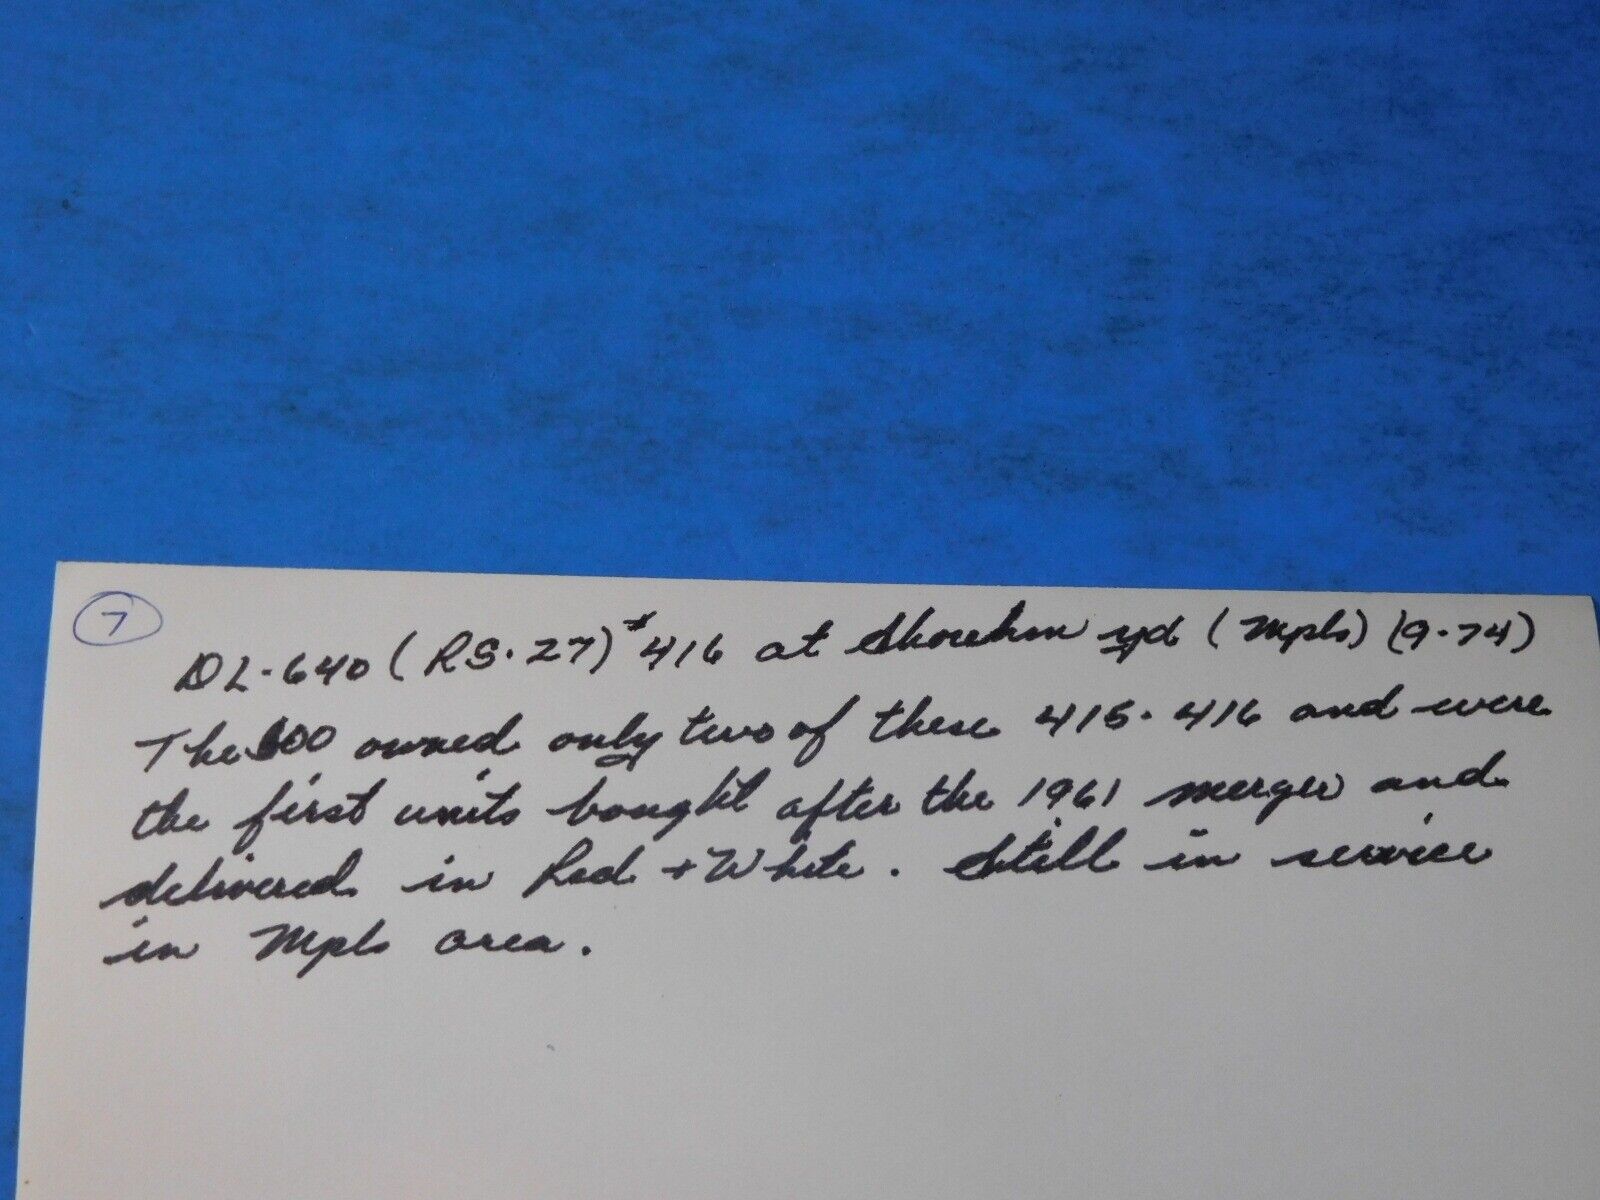 7
DL-640 (RS-27) #416 at Shoreham yd (Mpls) (9-74)
The SOO owned only two of these 415-416 and were
the first units bought after the 1961 merger and
delivered in Red + White. Still in service
in Mpls area.